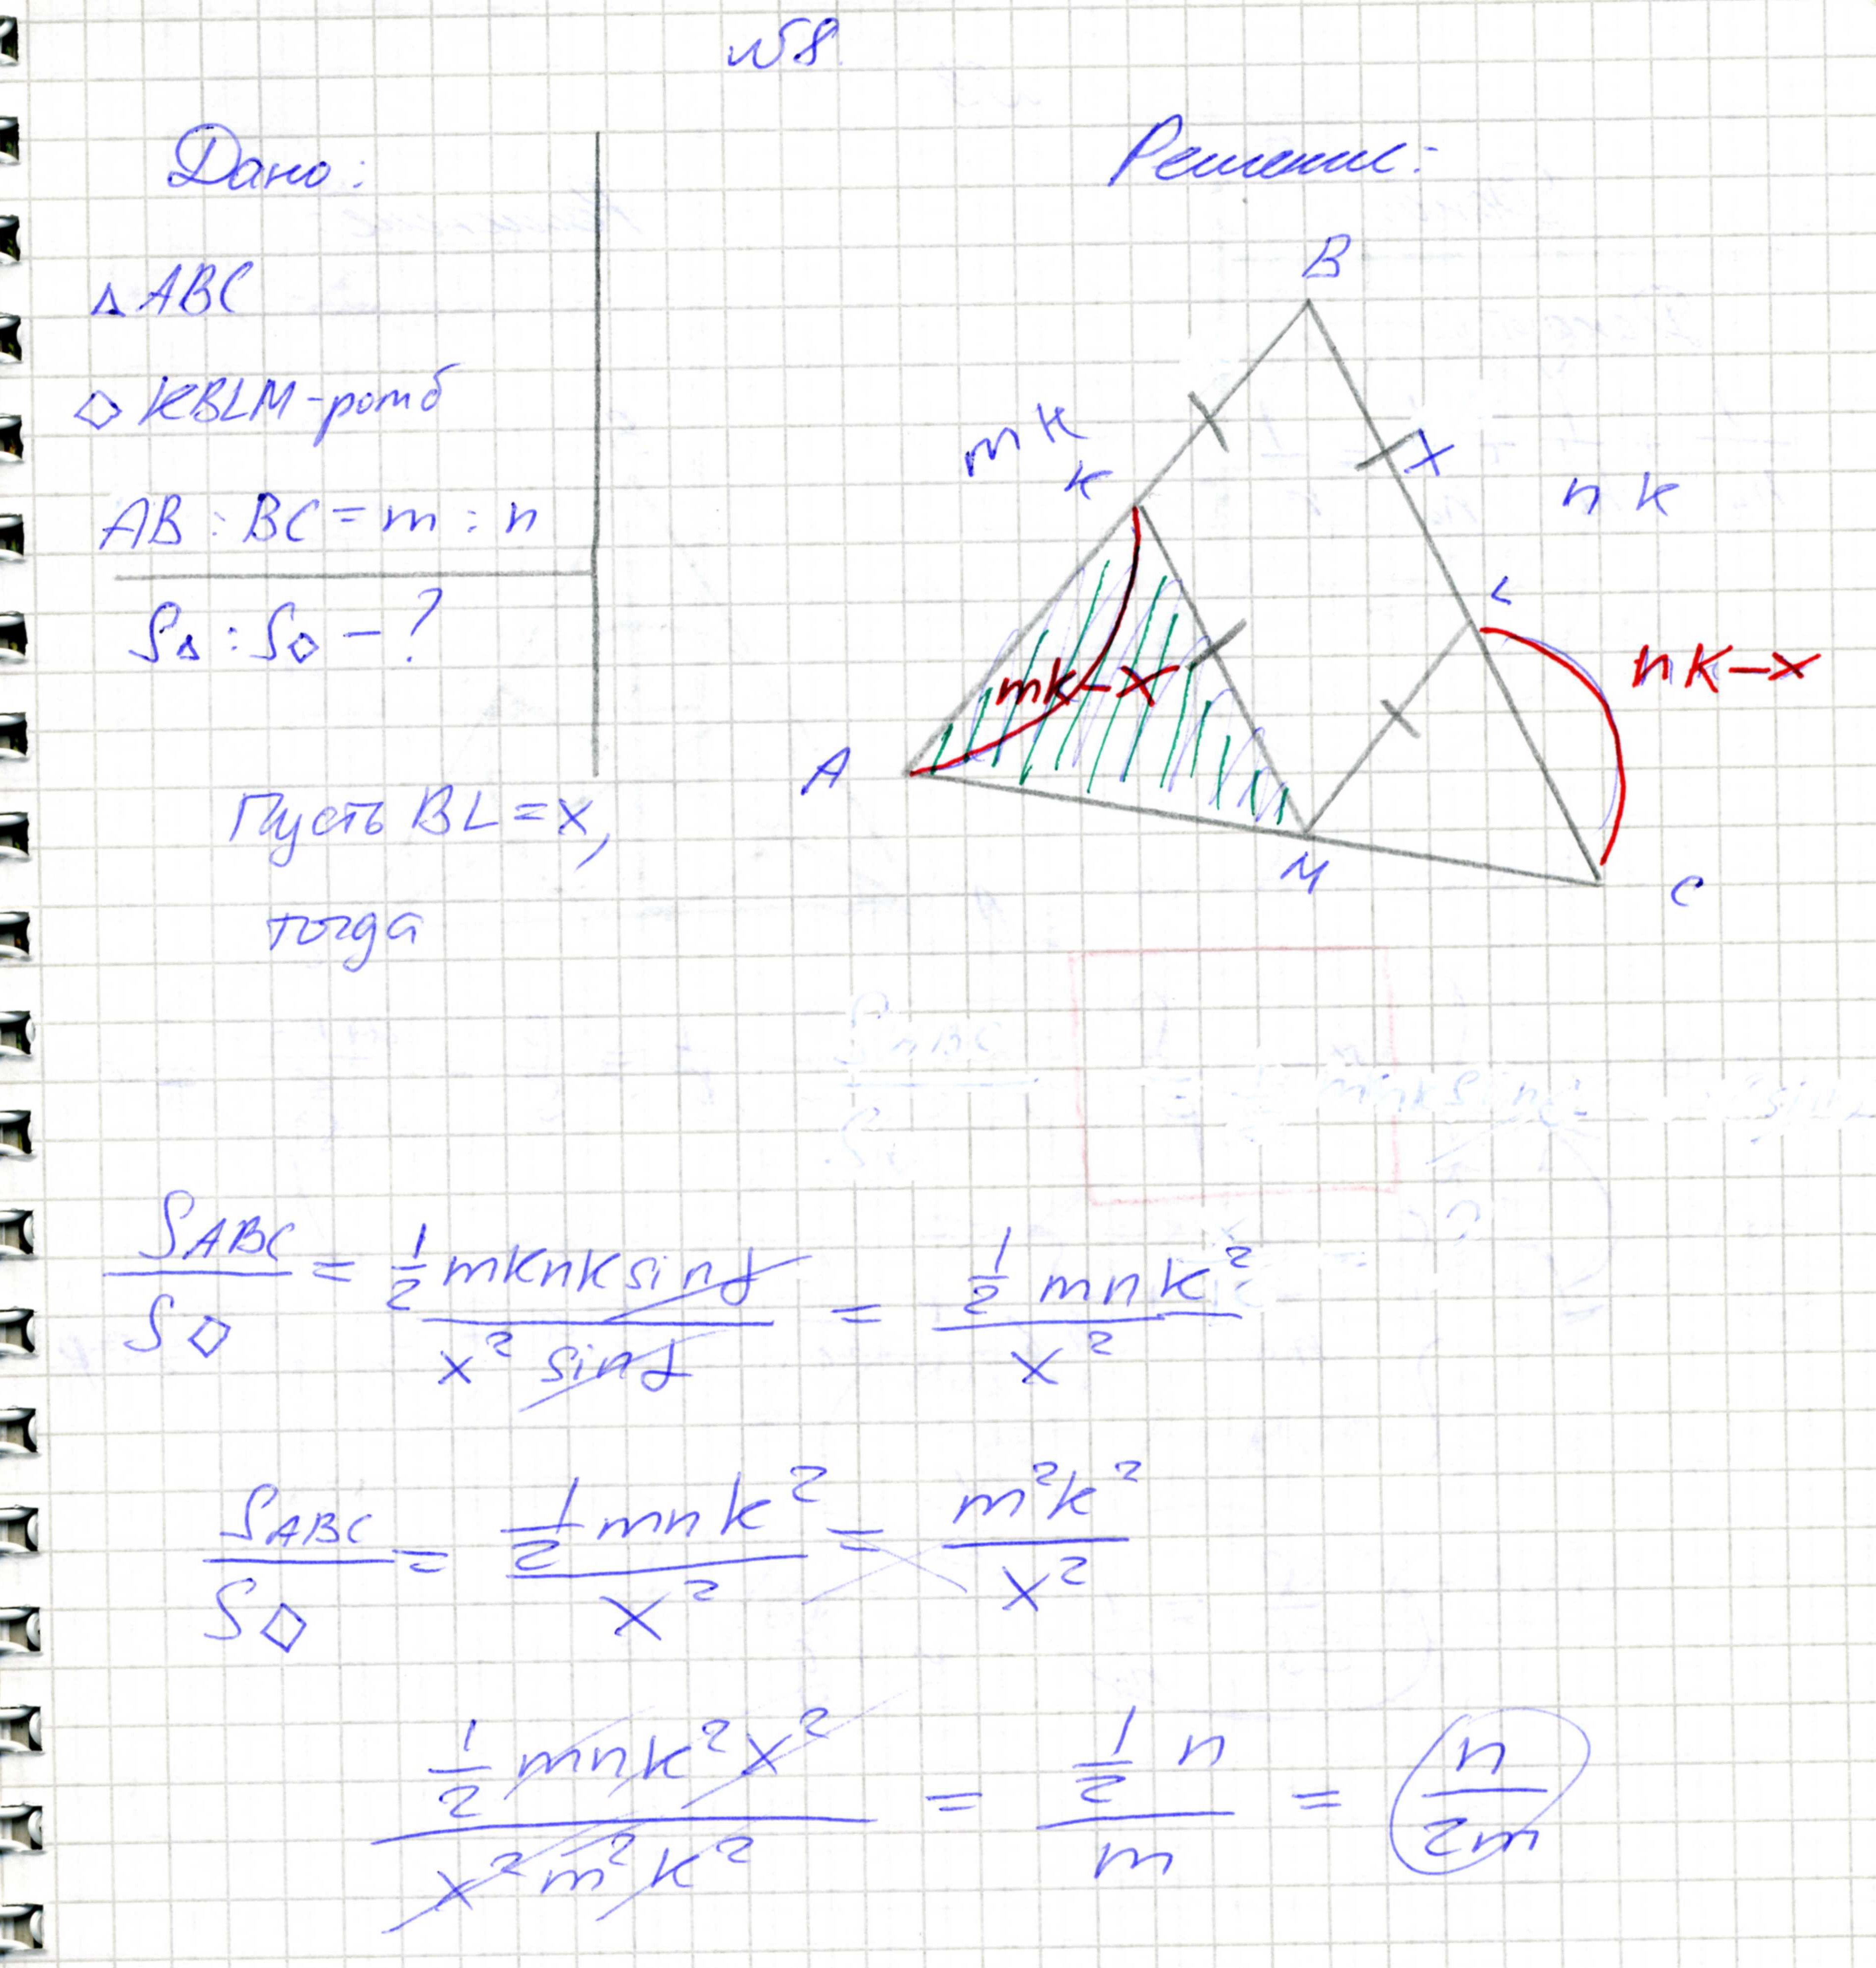 №8.
Дано:
Решение:
△ABC
◇KBLM-ромб
AB : BC = m : n
S△ : S◇ - ?
B
mk
K
x
nk
L
nk-x
mk-x
A
M
C
Пусть BL = x,
тогда
S ABC / S◇ = 1/2 mknk sin γ / x² sin γ = 1/2 mnk² / x²
S ABC / S◇ = 1/2 mnk² / x² = m²k² / x²
1/2 mnk²x² / x²m²k² = 1/2 n / m = n / 2m